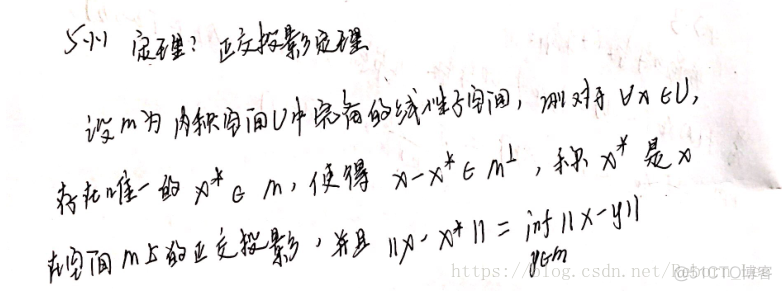 定理：正交投影定理
设m为内积空间U中完备的线性子空间，则对于∀x∈U，
存在唯一的x*∈m，使得 x-x*∈m⊥，称x*是x
在空间m上的正交投影，并且 ||x-x*|| = inf ||x-y||
y∈m
https://blog.csdn.net/
@51CTO博客